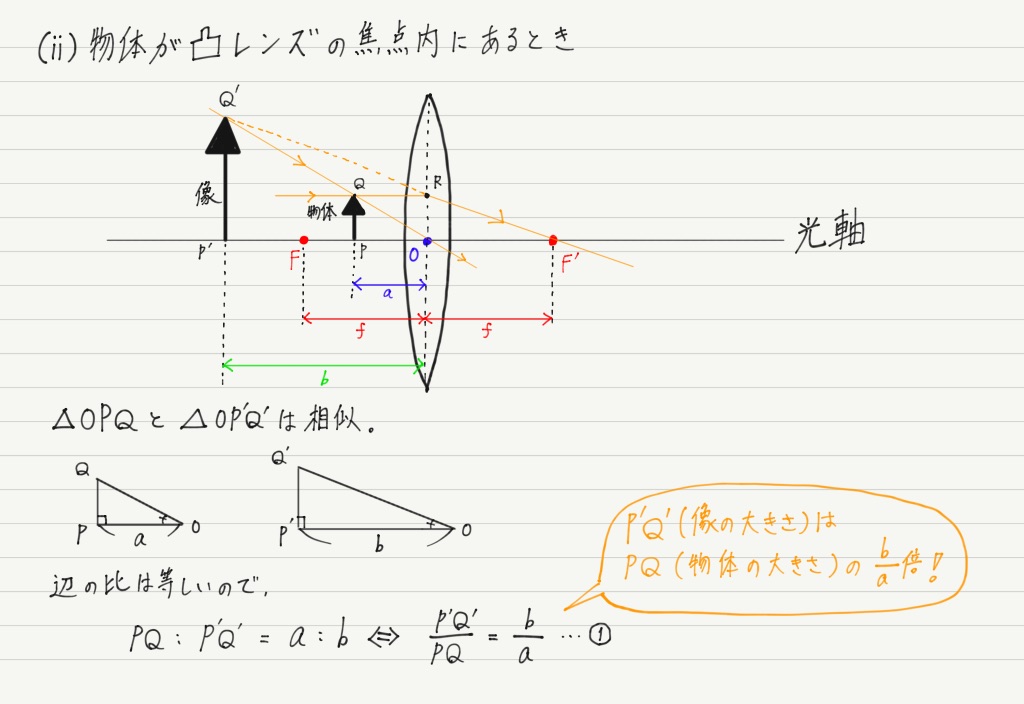 (ii) 物体が凸レンズの焦点内にあるとき
Q'
像
Q
R
物体
P'
F
P
O
F'
光軸
a
f
f
b
△OPQと△OP'Q'は相似。
Q
P
a
O
Q'
P'
b
O
P'Q'(像の大きさ)は
PQ(物体の大きさ)の b/a 倍!
辺の比は等しいので,
PQ : P'Q' = a : b ⇔ P'Q'/PQ = b/a … ①